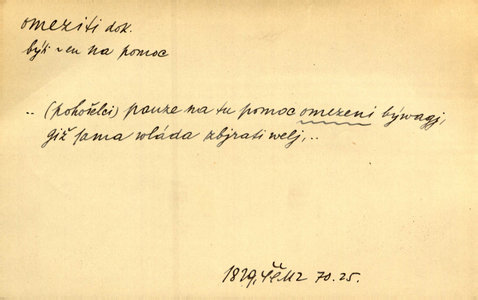 omeziti dok.
býti ~en na pomoc
.. (pohořelci) pauze na tu pomoc omezeni býwagj,
giž sama wláda zbjrati welj,..
1829, 70.25.